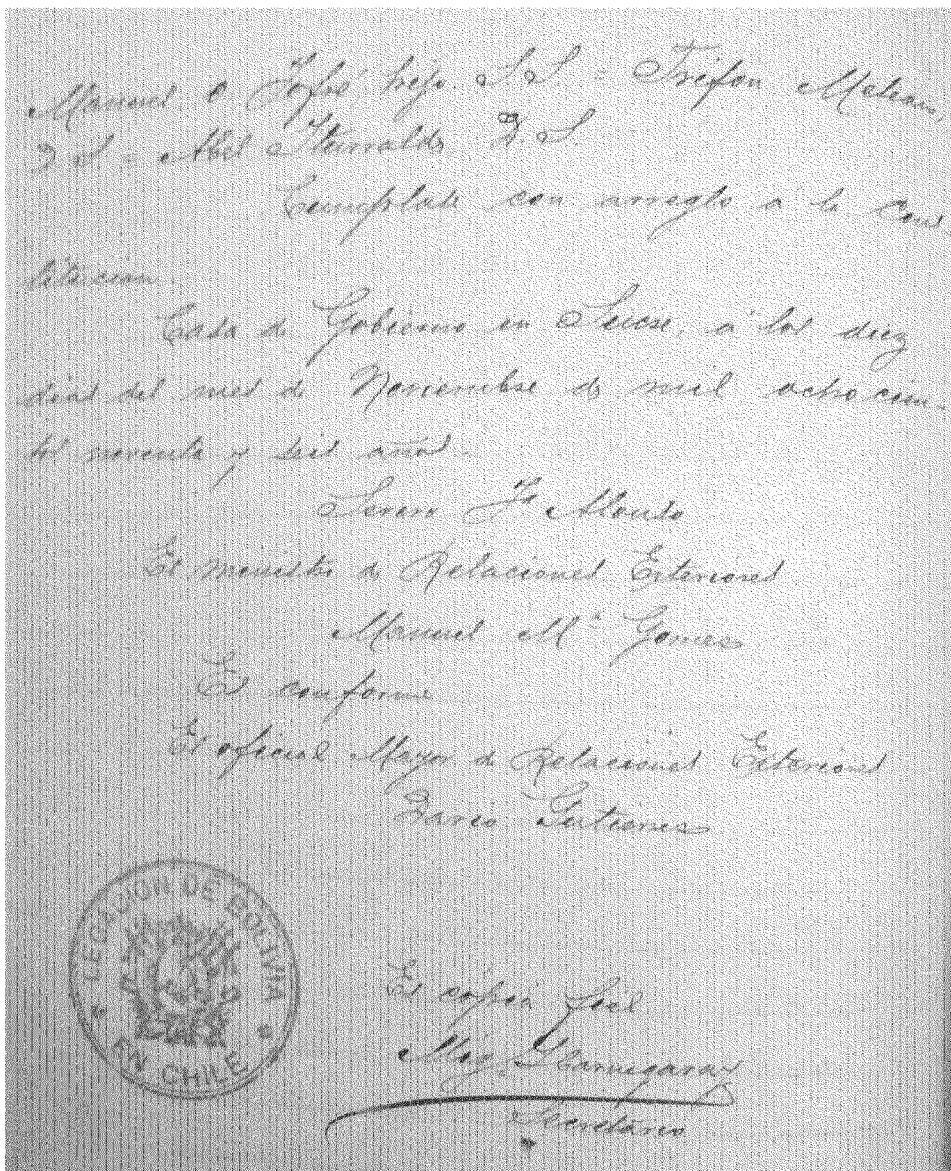 Manuel O Jofré hijo. S.S. = Trifon Melean,
D S = Abel Iturralde D. S.
Cumplase con arreglo á la Cons
titucion.
Casa de Gobierno en Sucre, á los diez
dias del mes de Noviembre de mil ochocien-
tos noventa y seis años.
Severo Fz Alonso
El ministro de Relaciones Exteriores
Manuel Mª Gomez
Es conforme
El oficial Mayor de Relaciones Exteriores
Dario Gutierrez
LEGACION DE BOLIVIA
EN CHILE
Es copia fiel
Secretario